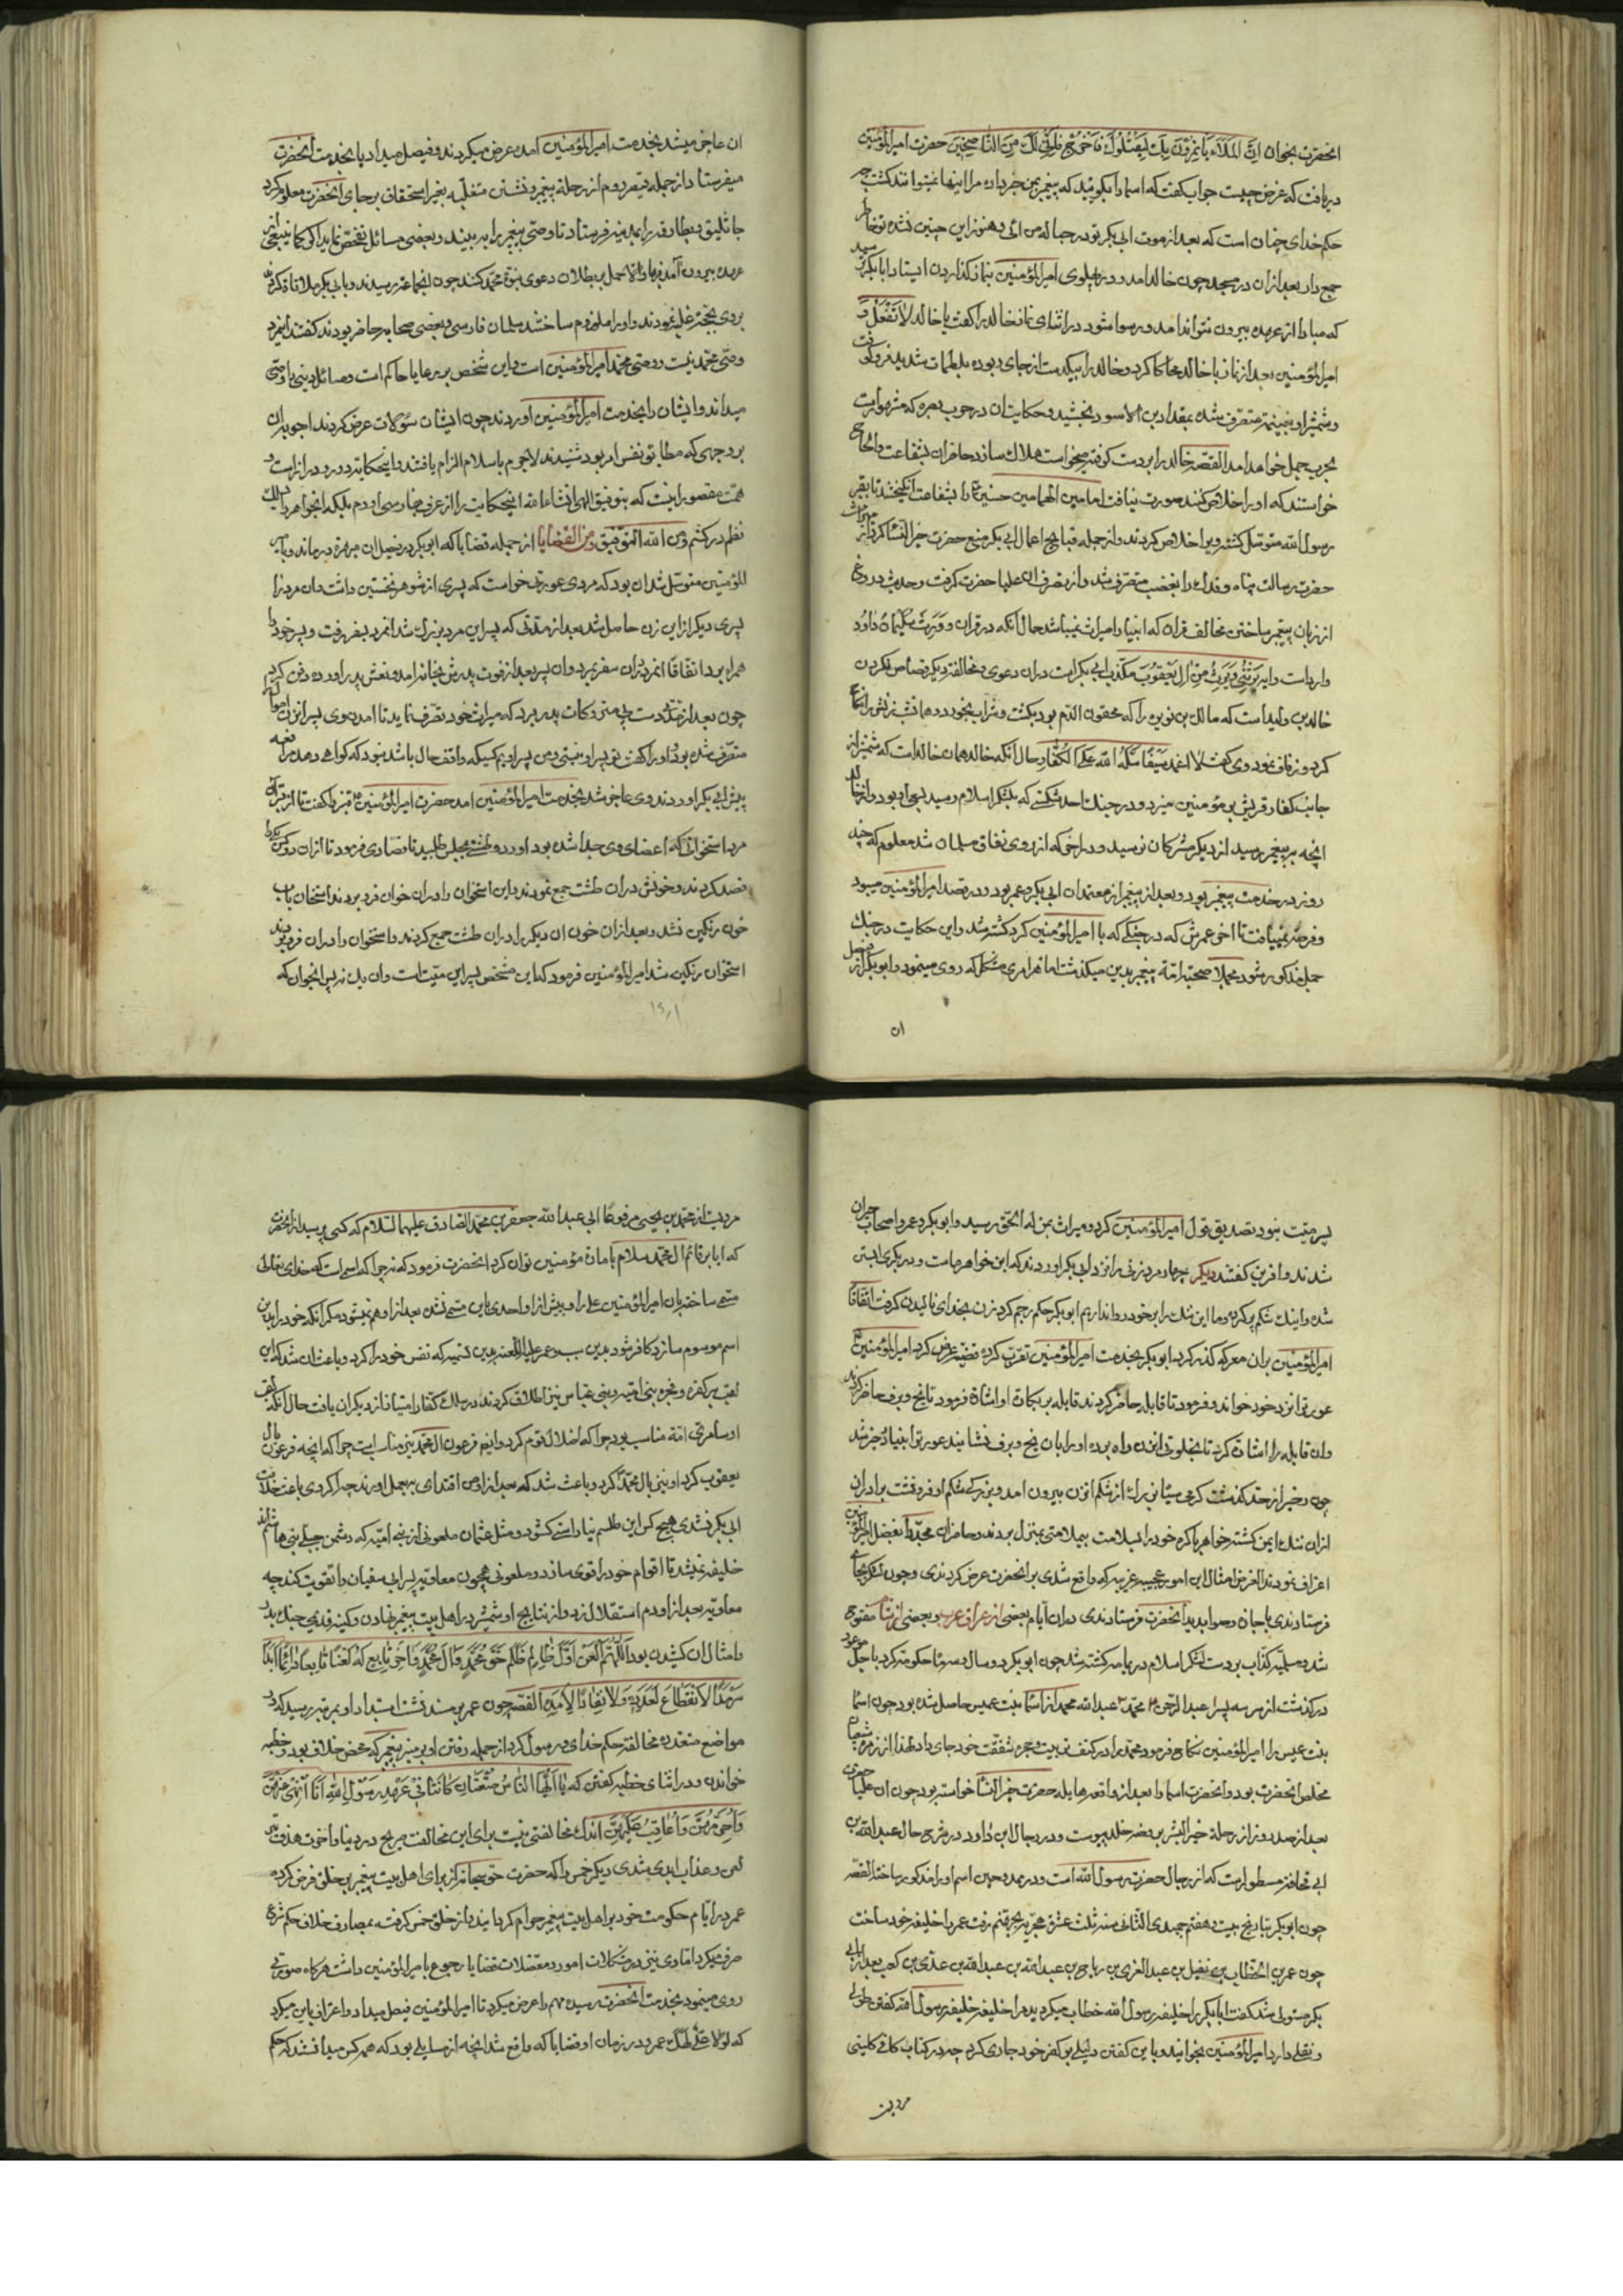 انحضرت بخوان اِنَّ المَلَاءَ یَاتَمِرُونَ بِكَ لِیَقتُلُوكَ فَاخرُج فَاِنِّی لَكَ مِنَ النَّاصِحِینَ حضرت امیرالمؤمنین
دریافت که غرض چیست جواب گفت که اسما را بگویید که پیغمبر بمن خبر داده مرا اینها نمیتوانند کشت
حکم خدای چنان است که بعد از موت ابی بکر تو در حباله من ائی و هنوز این چنین نشده تو خاطر
جمع دار بعد از ان در مسجد چون خالد امد و در پهلوی امیرالمؤمنین بنماز کذاردن ایستاد ابابکر ترسید
که مبادا از عهده بیرون نتواند امد و رسوا شود در اثنای نماز خالد را کفت یا خالد لا تفعل و
امیرالمؤمنین بعد از نماز با خالد محاکا کرد و خالد را بیکدست از جای ربوده بلطمات شدید فرو کوفت
و شمشیر او بغنیمت متصرف شده بمقداد بن الاسود بخشید و حکایت ان در حرب بصره که مشهور است
بحرب جمل خواهد امد القصه خالد را بر دست کوفته میخواست هلاك سازد حاضران بشفاعت والحاح
خواستند که او را خلاص کنند صورت نیافت امامین الهمامین حسنین را بشفاعت انگیختند تا بقبر
رسول الله متوسل کشته ویرا خلاص کردند و از جمله قبایح اعمال ابی بکر منع حضرت خیر النسا کرد از میراث
حضرت رسالت پناه و فدك را بغضب متصرف شد و از تصرف ان علیا حضرت کرفت و حدیث دروغ
از زبان پیغمبر ساختن مخالف قران که انبیا را میراث نمیباشد حال آنکه در قران و وَرِثَ سُلَیمَانُ دَاوُدَ
وارد است و ایه یَرِثُنِی وَ یَرِثُ مِن اٰلِ یَعقُوبَ مکذب ابی بکر است در ان دعوی و مخالفت دیکر قصاص نکردن
خالد بن ولید است که مالك بن نویره را که محقون الدم بود بکشت و شراب بخورد و همان شب زنش را
کرد و زفاف نمود وی کفت لا اغمد سَیفًا سَلَّهُ اللهُ عَلَی الکُفَّارِ و حال آنکه خالد همان خالد است که شمشیر از
جانب کفار قریش بر مؤمنین میزد و در جنك احد شکستی که بلشکر اسلام رسید بسبب او بود و از خالد
انچه به پیغمبر رسید از دیکر مشرکان نرسید و در اخر که از روی نفاق مسلمان شد معلوم که چند
روز در خدمت پیغمبر بود و بعد از پیغمبر از معتمدان ابی بکر و عمر بود و در قصد امیرالمؤمنین میبود
و فرصت نمییافت تا اخر عمرش که در جنگی که با امیرالمؤمنین کرد کشته شد و این حکایت در جنك
جمل مذکور شود مجملا صحبت امة پیغمبر بدین میکذشت اما هر امری مشکل که روی مینمود و ابوبکر از فیصل
ان
ان عاجز میشد بخدمت امیرالمؤمنین امده عرض میکردند و فیصل میداد یا بخدمت آنحضرت
میفرستاد از جمله قیصر روم از رحلة پیغمبر و نشستن متغلبه بغیر استحقاق بر جای آنحضرت معلوم کرد
جاثلیق و بطارقه را بمدینه فرستاد تا وصی پیغمبر را به بینند و بعضی مسائل تفحص نماید اگر کما ینبغی از
عهده بیرون آمد فبها و الا حمل بر بطلان دعوی نبوة محمد کنند چون انجماعة رسیدند و با ابی بکر ملاقاة کردند
بر وی بحجة غلبه نمودند و او را ملزم ساختند سلمان فارسی و بعضی صحابه حاضر بودند کفتند اینمرد
وصی محمد نیست و وصی محمد امیرالمؤمنین است و این شخص بر رعایا حاکم است و مسائل دینی را وصی
میداند و ایشان را بخدمت امیرالمؤمنین اوردند چون ایشان سؤالات عرض کردند اجوبه ان
بر وجهی که مطابق نفس امر بود شنیدند لاجرم باسلام الزام یافتند و اینحکایة دور و دراز است و
همت مقصور انست که بتوفیق الهی انشاءالله اینحکایت را از عربی بفارسی اوردم بلکه انجواهر را در سلك
نظم در کشم و من الله التوفیق و من القضایا از جمله قضایا که ابوبکر در فیصل ان مرة در ماند و بامیر
المؤمنین متوسل شد ان بود که مردی عورتی خواست که پسری از شوهر نخستین داشت و ان مرد را
پسری دیکر از این زن حاصل شد بعد از مدتی که پسر این مرد بزرك شد انمرد بسفر رفت و پسر خود را
همراه برد اتفاقا انمرد در ان سفر بمرد و ان پسر بعد از فوت پدرش بخانه امد و نعش پدر اورده دفن کرد
چون بعد از مدتی دست بر متروکات پدر برد که میراث خود تصرف نماید تا امدن وی پسر انزن اموال را
متصرف شده بود او را کفت تو پسر او نیستی و من پسر اویم کسیکه واقف حال باشد نبود که کواهی دهد مرافعه
پیش ابی بکر اوردند وی عاجز شد بخدمت امیرالمؤمنین امد حضرت امیرالمؤمنین قنبر را کفت تا از قبر آن
مرد استخوانی که از اعضای وی جدا شده بود اورد و طشتی بمجلس طلبید تا فصادی فرمود تا از ان دو کس یکی را
فصد کردند و خونش در ان طشت جمع نمودند و این استخوان را در ان خون فرو بردند استخوان باب
خون رنکین نشد و بعد از ان خون ان دیکر را در ان طشت جمع کردند و استخوان را در ان فرو بردند
استخوان رنکین شد امیرالمؤمنین فرمود که این شخص پسر این میت است و ان یك نه پس انجوان که
پسر میت نبود تصدیق بقول امیرالمؤمنین کرد و میراث بمن له الحق رسید و ابوبکر و عمر و اصحاب حیران
شدند و افرین کفتند دیکر چهار مرد زنی را نزد ابی بکر اوردند که این خواهر ماست و در بکری ابستن
شده و اینك شکم پر کرده و ما این ننك را بر خود روا نداریم ابوبکر حکم رجم کرد زن بخدای نالیدن کرفت اتفاقا
امیرالمؤمنین بر ان معرکه کذر کرد ابوبکر بخدمت امیرالمؤمنین تقرب کرده قضیه عرض کرد امیرالمؤمنین
عورة را نزد خود خواند و فرمود تا قابله حاضر کردند قابله بر بکارة او اشاره فرمود تا یخ و برف حاضر کردند
وان قابله را اشارة کرد تا بخلوتی انزن راه برده او را بان یخ و برف نشانیند عورة را بنیاد زحیر شد
چون زحیر از حد کذشت کرمی سیاه بزرك از شکم انزن بیرون امد و بزرکی شکم او فرو نشست برادران
از ان ننك ایمن کشته خواهر باکره خود را بسلامت بیملامتی بمنزل بردند و حاضران مجددا بفضل امیرالمؤمنین
اعتراف نمودند الغرض امثال این امور عجیبه غریبه که واقع شدی بر انحضرت عرض کردندی و چون لشکر بجائی
فرستادندی باجازه و صوابدید آنحضرت فرستادندی در ان ایام بعضی از عراق عرب و بعضی از شام مفتوح
شد و مسیلمه کذاب بر دست لشکر اسلام در یمامه کشته شد چون ابوبکر دو سال و سه ماه حکومت کرد باجل موعود
در کذشت از سه پسر عبدالرحمن محمد عبدالله محمد از اسما بنت عمیس حاصل شده بود چون اسما
بنت عمیس را امیرالمؤمنین نکاح فرمود محمد را در کنف تربیت و حجره شفقت خود جای داد لهذا از زمره شیعیان
مخلص انحضرت بود و انحضرت اسما را بعد از واقعه هایله حضرت خیر النسا خواسته بود چون ان علیا حضرت
بعد از صد روز از رحلة خیر البشر بروضه خلد پیوست و در رجال ابن داود در شرح حال عبدالله بن
ابی قحافه مسطور است که از رجال حضرت رسول الله است و در ممدوحین اسم او را مذکور ساخته القصه
چون ابوبکر بتاریخ بیست و هفتم جمیدی الثانی سنه ثلث عشره هجریه بجهنم رفت عمر را خلیفه خود ساخت
چون عمر بن الخطاب بن نفیل بن عبدالعزی بن ریاح بن عبدالله بن عبدالله بن عدی بن کعب بعد از ابی
بکر مستولی شد کفت ابابکر را خلیفه رسول الله خطاب میکردید مرا خلیفه خلیفه رسول الله کفتن طولی
و ثقلی دارد امیرالمؤمنین بخوانید و باین کفتن دلیلی بر کفر خود جاری کرد چه در کتاب کافی کلینی
مرویست
مرویست از محمد بن یحیی مرفوعا ابی عبدالله جعفر بن محمد الصادق علیهما السلام که کسی پرسید از انحضرت
که ایا بر قائم ال محمد سلام بامارة مؤمنین توان کرد انحضرت فرمود که نه چرا که اسمیست که خدای تعالی
مسمی ساخته بان امیرالمؤمنین علی را و پیش از او احدی باین مسمی نشده بعد از او هم نمیشود مکر آنکه خود را باین
اسم موسوم سازد کافر شود بدین سبب عمر علیه اللعنه بدین تسمیه که نفس خود را کرد و باعث ان شد که این
لقب بر کفره و فجره بنی امیه و بنی عباس نیز اطلاق کردند در سلك کفار امتیاز از دیکران یافت حال آنکه لقب
او سامری امة مناسب بود چرا که اضلال قوم کرد و اسم فرعون ال محمد نیز مناسبست چرا که انچه فرعون بال
یعقوب کرد او نیز بال محمد کرد و باعث شد که بعد از او من اقتدای بهم عمل اورند چه اکر وی باعث خلافت
ابی بکر نشدی هیچ کس این طلسم نیارستی کشود و مثل عثمان ملعونی از بنی امیه که دشمن جبلی بنی هاشم اند
خلیفه نمیشد تا اقوام خود را قوی سازد و ملعونی همچون معاویه پسر ابی سفیان را تقویت کند چه
معاویه بعد از او دم استقلال زد و از نتایج او شمشیر در اهل بیت پیغمبر نهادن و کینه قدیمی جنك بدر
و امثال ان کشیدن بود اَللّٰهُمَّ العَن اَوَّلَ ظَالِمٍ ظَلَمَ حَقَّ مُحَمَّدٍ وَاٰلِ مُحَمَّدٍ وَاٰخِرَ تَابِعٍ لَهُ لَعنًا تَابِعًا دَائِمًا اَبَدًا
سَرمَدًا لَا انقِطَاعَ لِعَدَدِهِ وَلَا نَفَادَ لِاَمَدِهِ القصه چون عمر بر مسند نشست استبداد او بمرتبه رسید که در
مواضع متعدده مخالفة حکم خدای و رسول کرد از جمله رفتن او بمنبر پیغمبر که محض خلاف بود و خطبه
خواندن و در اثنای خطبه کفتن که یَا اَیُّهَا النَّاسُ مُتعَتَانِ کَانَتَا فِی عَهدِ رَسُولِ اللهِ اَنَا اَنهٰی عَنهُنَّ
وَاُحَرِّمُهُنَّ وَاُعَاقِبُ عَلَیهِنَّ اندك مخالفتی نیست برای این مخالفت صریح در دنیا و اخرت هدف تیر
لعن و عذاب ابدی شدی دیکر خمس را که حضرت حق سبحانه از برای اهل بیت پیغمبر بر خلق فرض کرده
عمر در ایام حکومت خود بر اهل بیت پیغمبر حرام کردانید و از خلق خمس کرفته بمصارف خلاف حکم شرع
صرف میکرد اما وی نیز در مشکلات امور و معضلات قضایا رجوع بامیرالمؤمنین داشت هر کاه صورتی
روی مینمود بخدمت آنحضرت رسیده مهم را عرض میکرد تا امیرالمؤمنین فیصل میداد و اعتراف باین میکرد
که لَولَا عَلِیٌّ لَهَلَكَ عُمَر و در زمان او قضایا که واقع شد انچه از مسایلی بود که همه کس میدانستند که حکم